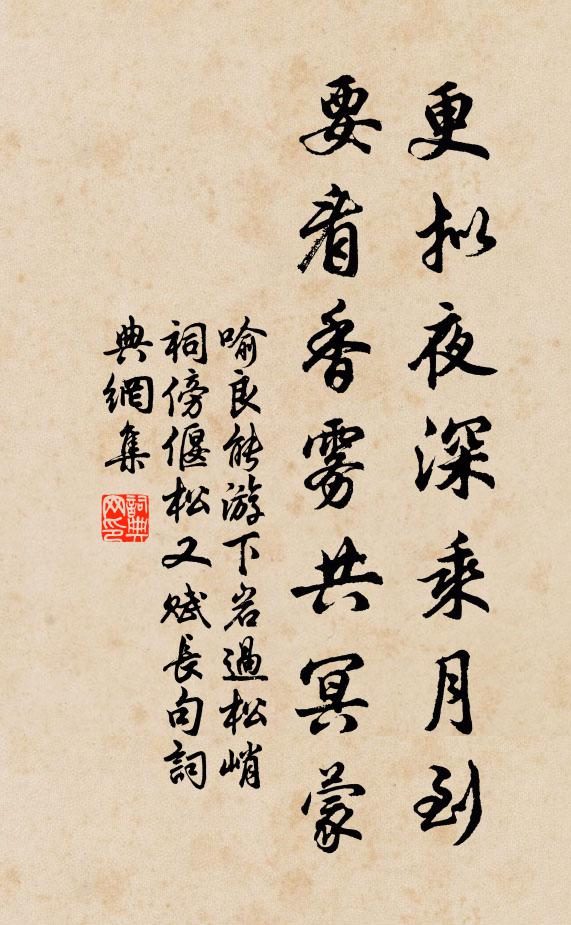 更拟夜深乘月到
要看香雾共冥蒙
喻良能游下岩過松峭
祠傍偃松又賦長句詞
典網集
詞典
网印